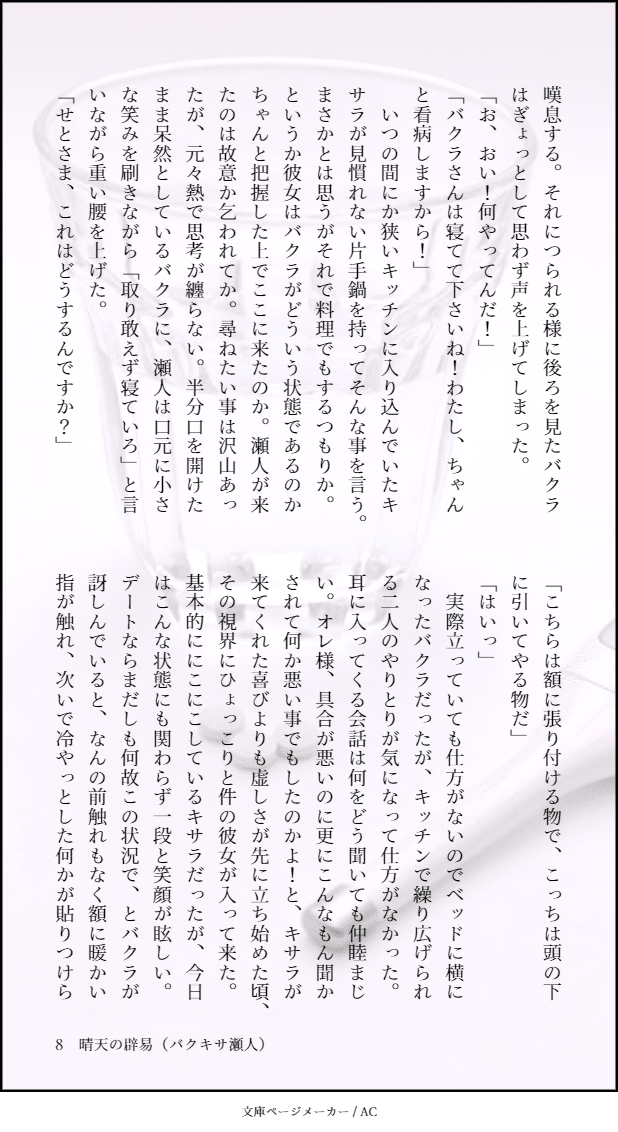 嘆息する。それにつられる様に後ろを見たバクラ
はぎょっとして思わず声を上げてしまった。
「お、おい！何やってんだ！」
「バクラさんは寝てて下さいね！わたし、ちゃん
と看病しますから！」
　いつの間にか狭いキッチンに入り込んでいたキ
サラが見慣れない片手鍋を持ってそんな事を言う。
まさかとは思うがそれで料理でもするつもりか。
というか彼女はバクラがどういう状態であるのか
ちゃんと把握した上でここに来たのか。瀬人が来
たのは故意か乞われてか。尋ねたい事は沢山あっ
たが、元々熱で思考が纏らない。半分口を開けた
まま呆然としているバクラに、瀬人は口元に小さ
な笑みを刷きながら「取り敢えず寝ていろ」と言
いながら重い腰を上げた。
「せとさま、これはどうするんですか？」
「こちらは額に張り付ける物で、こっちは頭の下
に引いてやる物だ」
「はいっ」
　実際立っていても仕方がないのでベッドに横に
なったバクラだったが、キッチンで繰り広げられ
る二人のやりとりが気になって仕方がなかった。
耳に入ってくる会話は何をどう聞いても仲睦まじ
い。オレ様、具合が悪いのに更にこんなもん聞か
されて何か悪い事でもしたのかよ！と、キサラが
来てくれた喜びよりも虚しさが先に立ち始めた頃、
その視界にひょっこりと件の彼女が入って来た。
基本的ににこにこしているキサラだったが、今日
はこんな状態にも関わらず一段と笑顔が眩しい。
デートならまだしも何故この状況で、とバクラが
訝しんでいると、なんの前触れもなく額に暖かい
指が触れ、次いで冷やっとした何かが貼りつけら
8　晴天の辟易（バクキサ瀬人）
文庫ページメーカー / AC